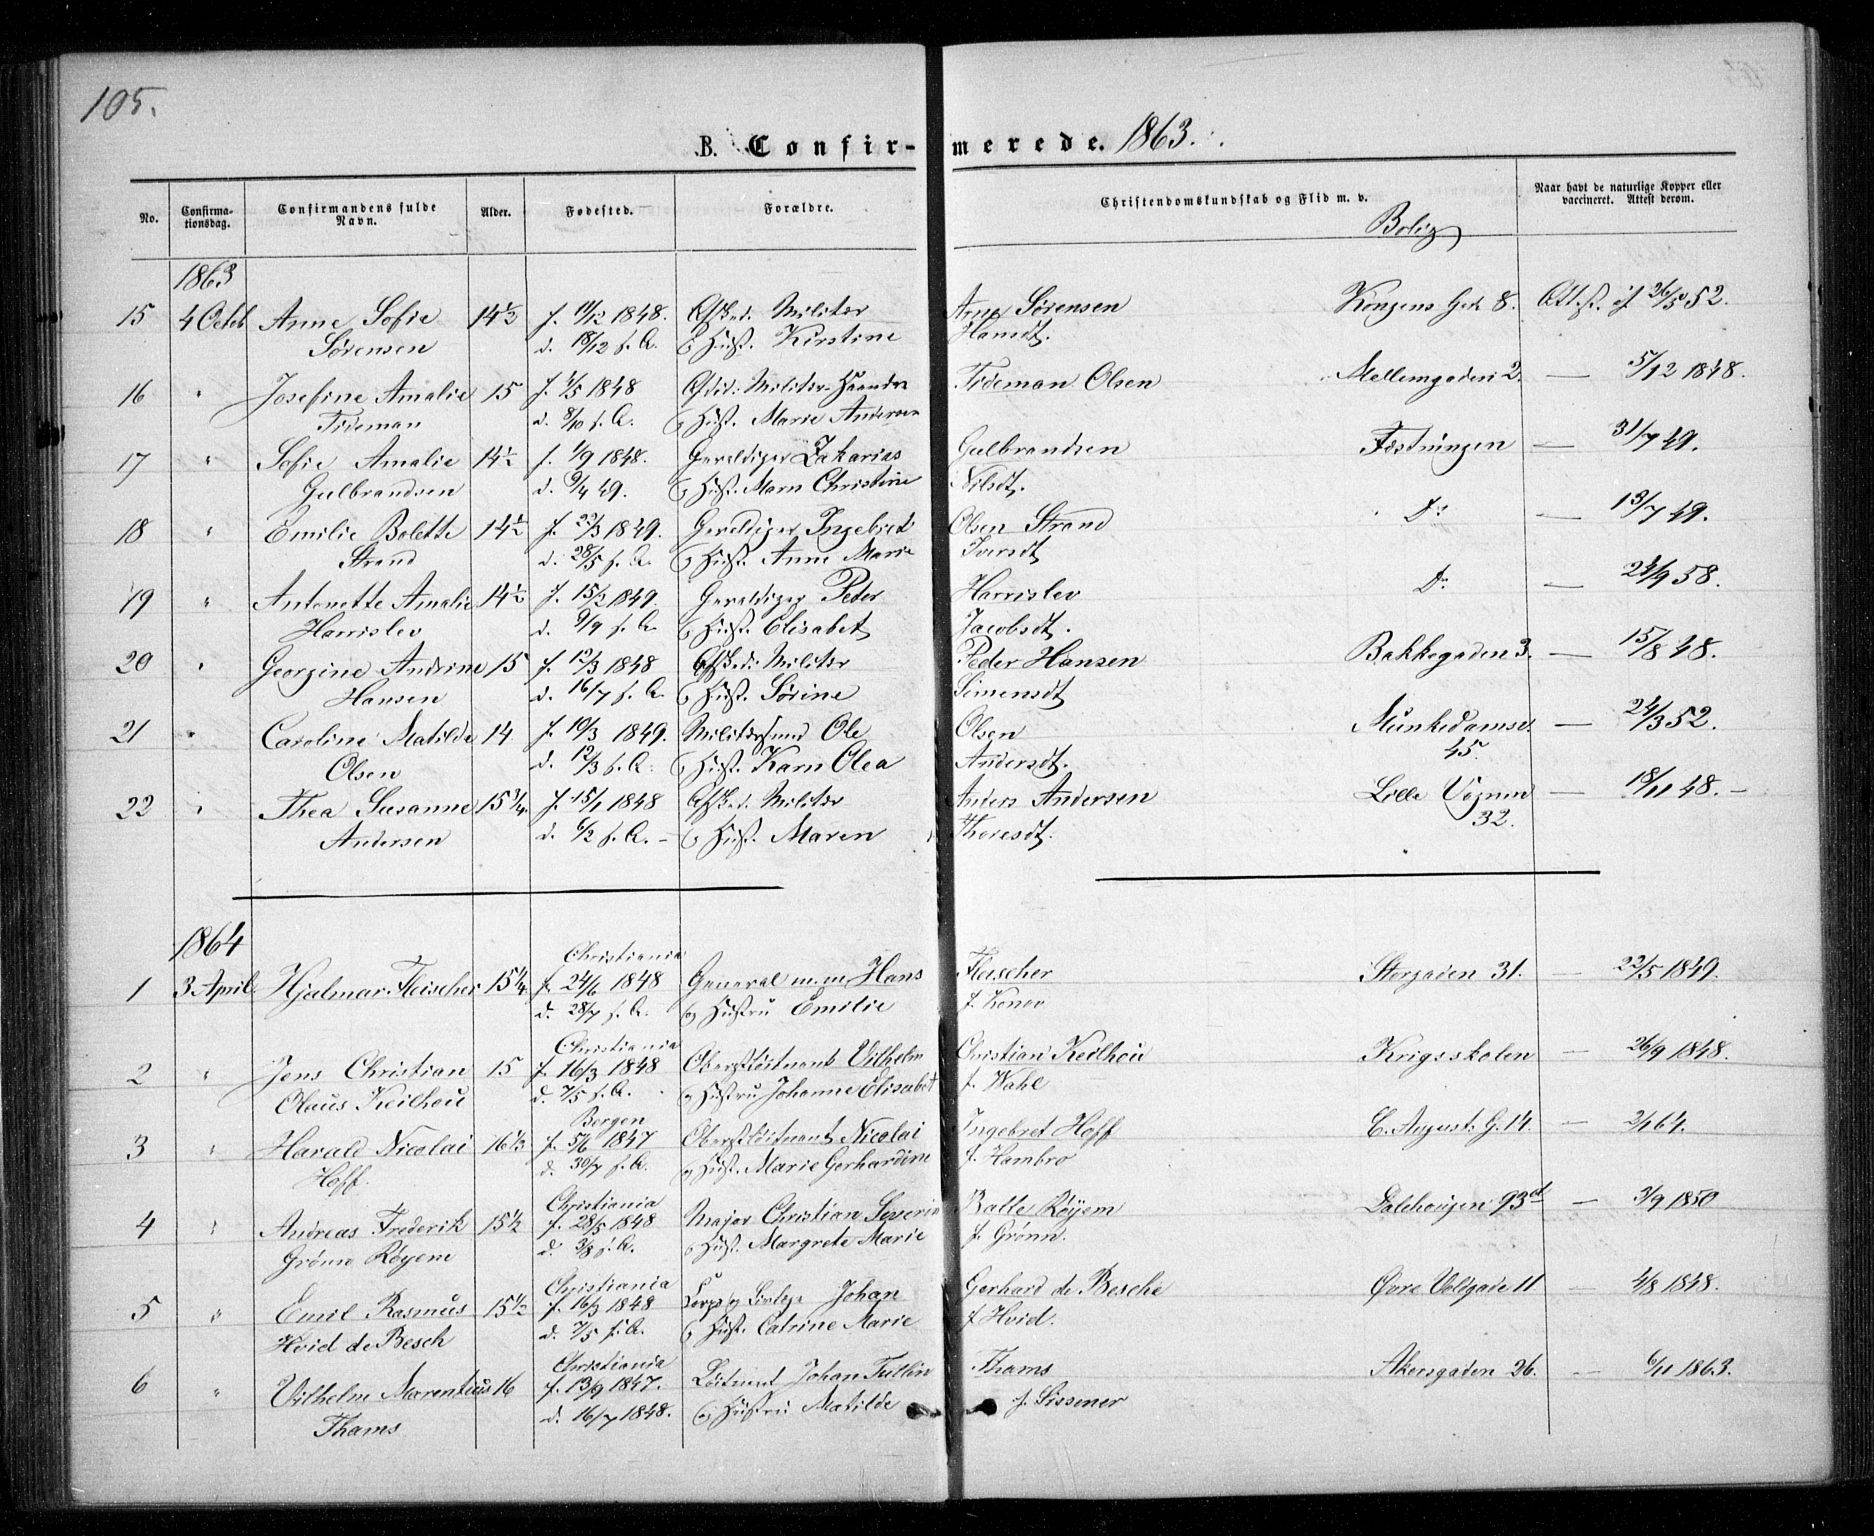 105.
B. Confirmerede. 1863.
No. Confirmationsdag. Confirmandens fulde Navn. Alder. Fødested. Forældre. Christendomskundskab og Flid m. v. Bolig Naar havt de naturlige Kopper eller vaccineret. Attest derom.
1863
15 4 Octob Anne Sofie 14½ f. 11/12 1848. Afsked. Militær Arne Sørensen Kongens Gade 8. Att.st. if 26/5 52.
Sørensen d. 18/12 s. A. & Hust. Kirstine Hansdt.
16 " Josefine Amalie 15 f. 4/5 1848 Militær Tideman Olsen Mellemgaden 2. — 5/12 1848.
Tideman d. 8/10 s. A. & Hust. Marie Andersen
17 " Sofie Amalie 14½ f. 1/9 1848. Gevaldiger Zakarias Gulbrandsen Fæstningen — 31/7 49.
Gulbrandsen d. 9/4 49. & Hust. Maren Christine Nilsdt.
18 " Emilie Bolette 14½ f. 22/3 1849. Gevaldiger Ingebret Olsen Strand Do — 13/7 49.
Strand d. 28/5 s. A. & Hust. Anne Marie Iversdt
19 " Antonette Amalie 14½ f. 15/2 1849. Gevaldiger Peder Harrislev Do — 24/9 58.
Harrislev d. 9/9 s. A. & Hust. Elisabet Jacobsdt.
20 " Georgine Andrine 15 f. 12/3 1848 Afsked. Militær Peder Hansen Bakkegaden 3. — 15/8 48.
Hansen d. 16/7 s. A. & Hust. Sørine Simensdt
21 " Caroline Matilde 14 f. 10/3 1849. Ole Olsen Munkedamsv. — 24/3 52.
Olsen d. 12/3 s. A. & Hust. Karn Olea Andersdt. 45.
22 " Thea Susanne 15¾ f. 15/1 1848 Afsked. Militær Anders Andersen Lille Vognm — 18/11 48. —
Andersen d. 6/2 s. A. — & Hust. Maren Thoresdt. 32.
1864
Christiania
1 3 April Hjalmar Fleischer 15¼ f. 24/6 1848 General m.m. Hans Fleischer Storgaden 31. — 22/5 1849.
d. 28/7 s. A. & Hustru Emilie f. Konow
Christiania
2 " Jens Christian 15 f. 16/3 1848 Oberstløitnant Vilhelm Christian Keilhau Krigsskolen — 26/9 1848.
Olaus Keilhau d. 7/5 s. A. & Hustru Johanne Elisabet f. Wahl
Bergen
3 " Harald Nicolai 16⅓ f. 5/6 1847 Oberstløitnant Nicolai Ingebret Hoff C. August. G. 14. — 2/1 64.
Hoff. d. 30/7 s. A. & Hust. Marie Gerhardine f. Hambro
Christiania
4 " Andreas Frederik 15½ f. 28/5 1848 Major Christian Severin Balle Røyem Dalehaugen 93d — 3/9 1850
Grønn Røyem d. 3/8 s. A. & Hust. Margrete Marie f. Grønn.
Christiania
5 " Emil Rasmus 15½ f. 16/3 1848 Johan Gerhard de Besche Øvre Voldgade 11 — 4/8 1848.
Hvid de Besch d. 7/5 s. A. & Hust. Catrine Marie f. Hvid.
Christiania
6 " Vilhelm Marentius 16 f. 13/9 1847. Løitnant Johan Tullin Thams Akersgaden 26. — 6/11 1863.
Thams d. 16/7 1848. & Hustru Matilde f. Sissener